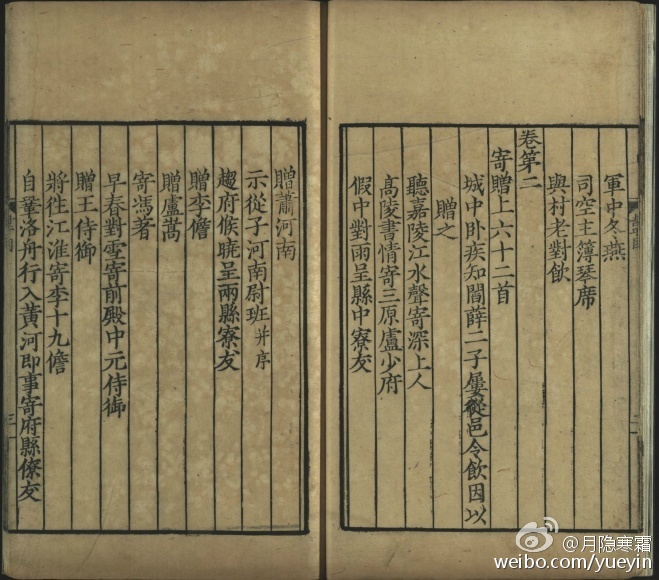 軍中冬燕
司空主簿琴席
與村老對飲
卷第二
寄贈上六十二首
城中卧疾知閻薛二子屢從邑令飲因以
贈之
聽嘉陵江水聲寄深上人
高陵書情寄三原盧少府
假中對雨呈縣中寮友
贈蕭河南
示從子河南尉班并序
趨府候曉呈兩縣寮友
贈李儋
贈盧嵩
寄馮著
早春對雪寄前殿中元侍御
贈王侍御
將往江淮寄李十九儋
自鞏洛舟行入黃河即事寄府縣僚友
@月隐寒霜
weibo.com/yueyin